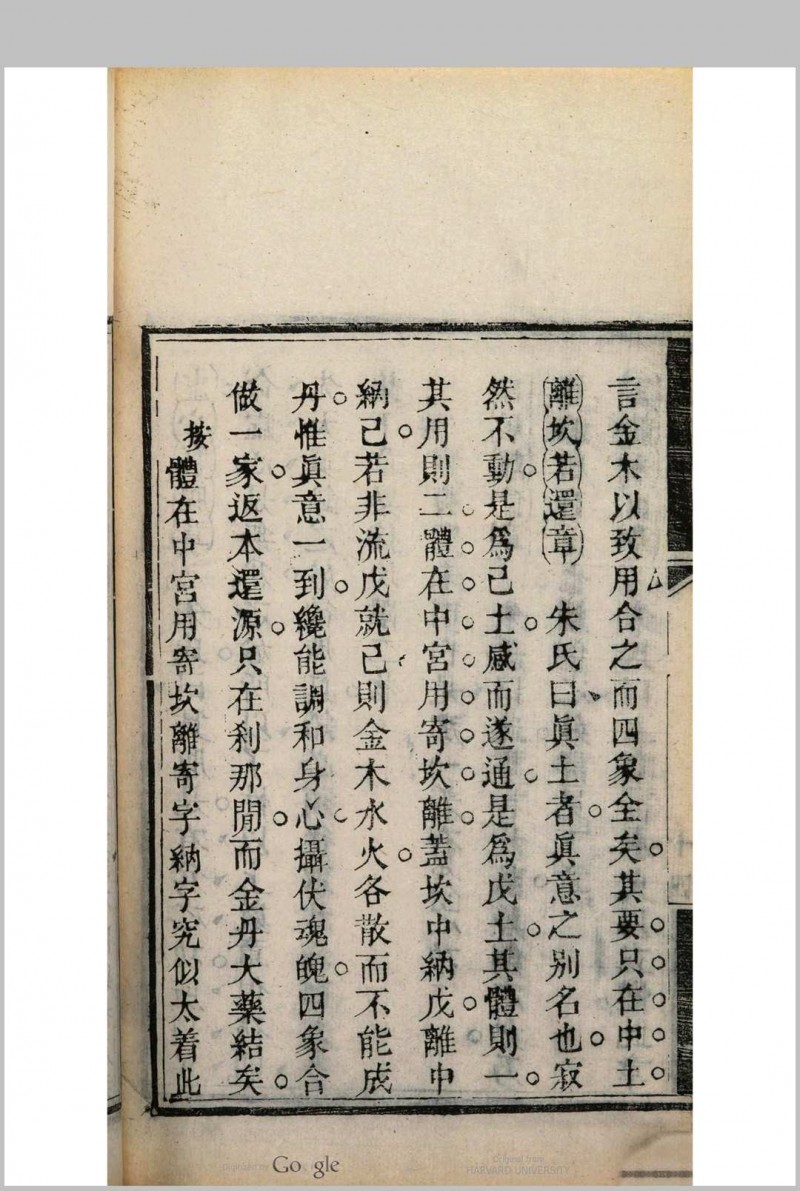 言金木以致用合之而四象全矣其要只在中土
離坎若還章 朱氏曰眞土者眞意之別名也寂
然不動是爲己土感而遂通是爲戊土其體則一
其用則二體在中宮用寄坎離蓋坎中納戊離中
納己若非流戊就己則金木水火各散而不能成
丹惟眞意一到纔能調和身心攝伏魂魄四象合
做一家返本還源只在刹那閒而金丹大藥結矣
按體在中宮用寄坎離寄字納字究似太着此
Google
Original from
HARVARD UNIVERSITY